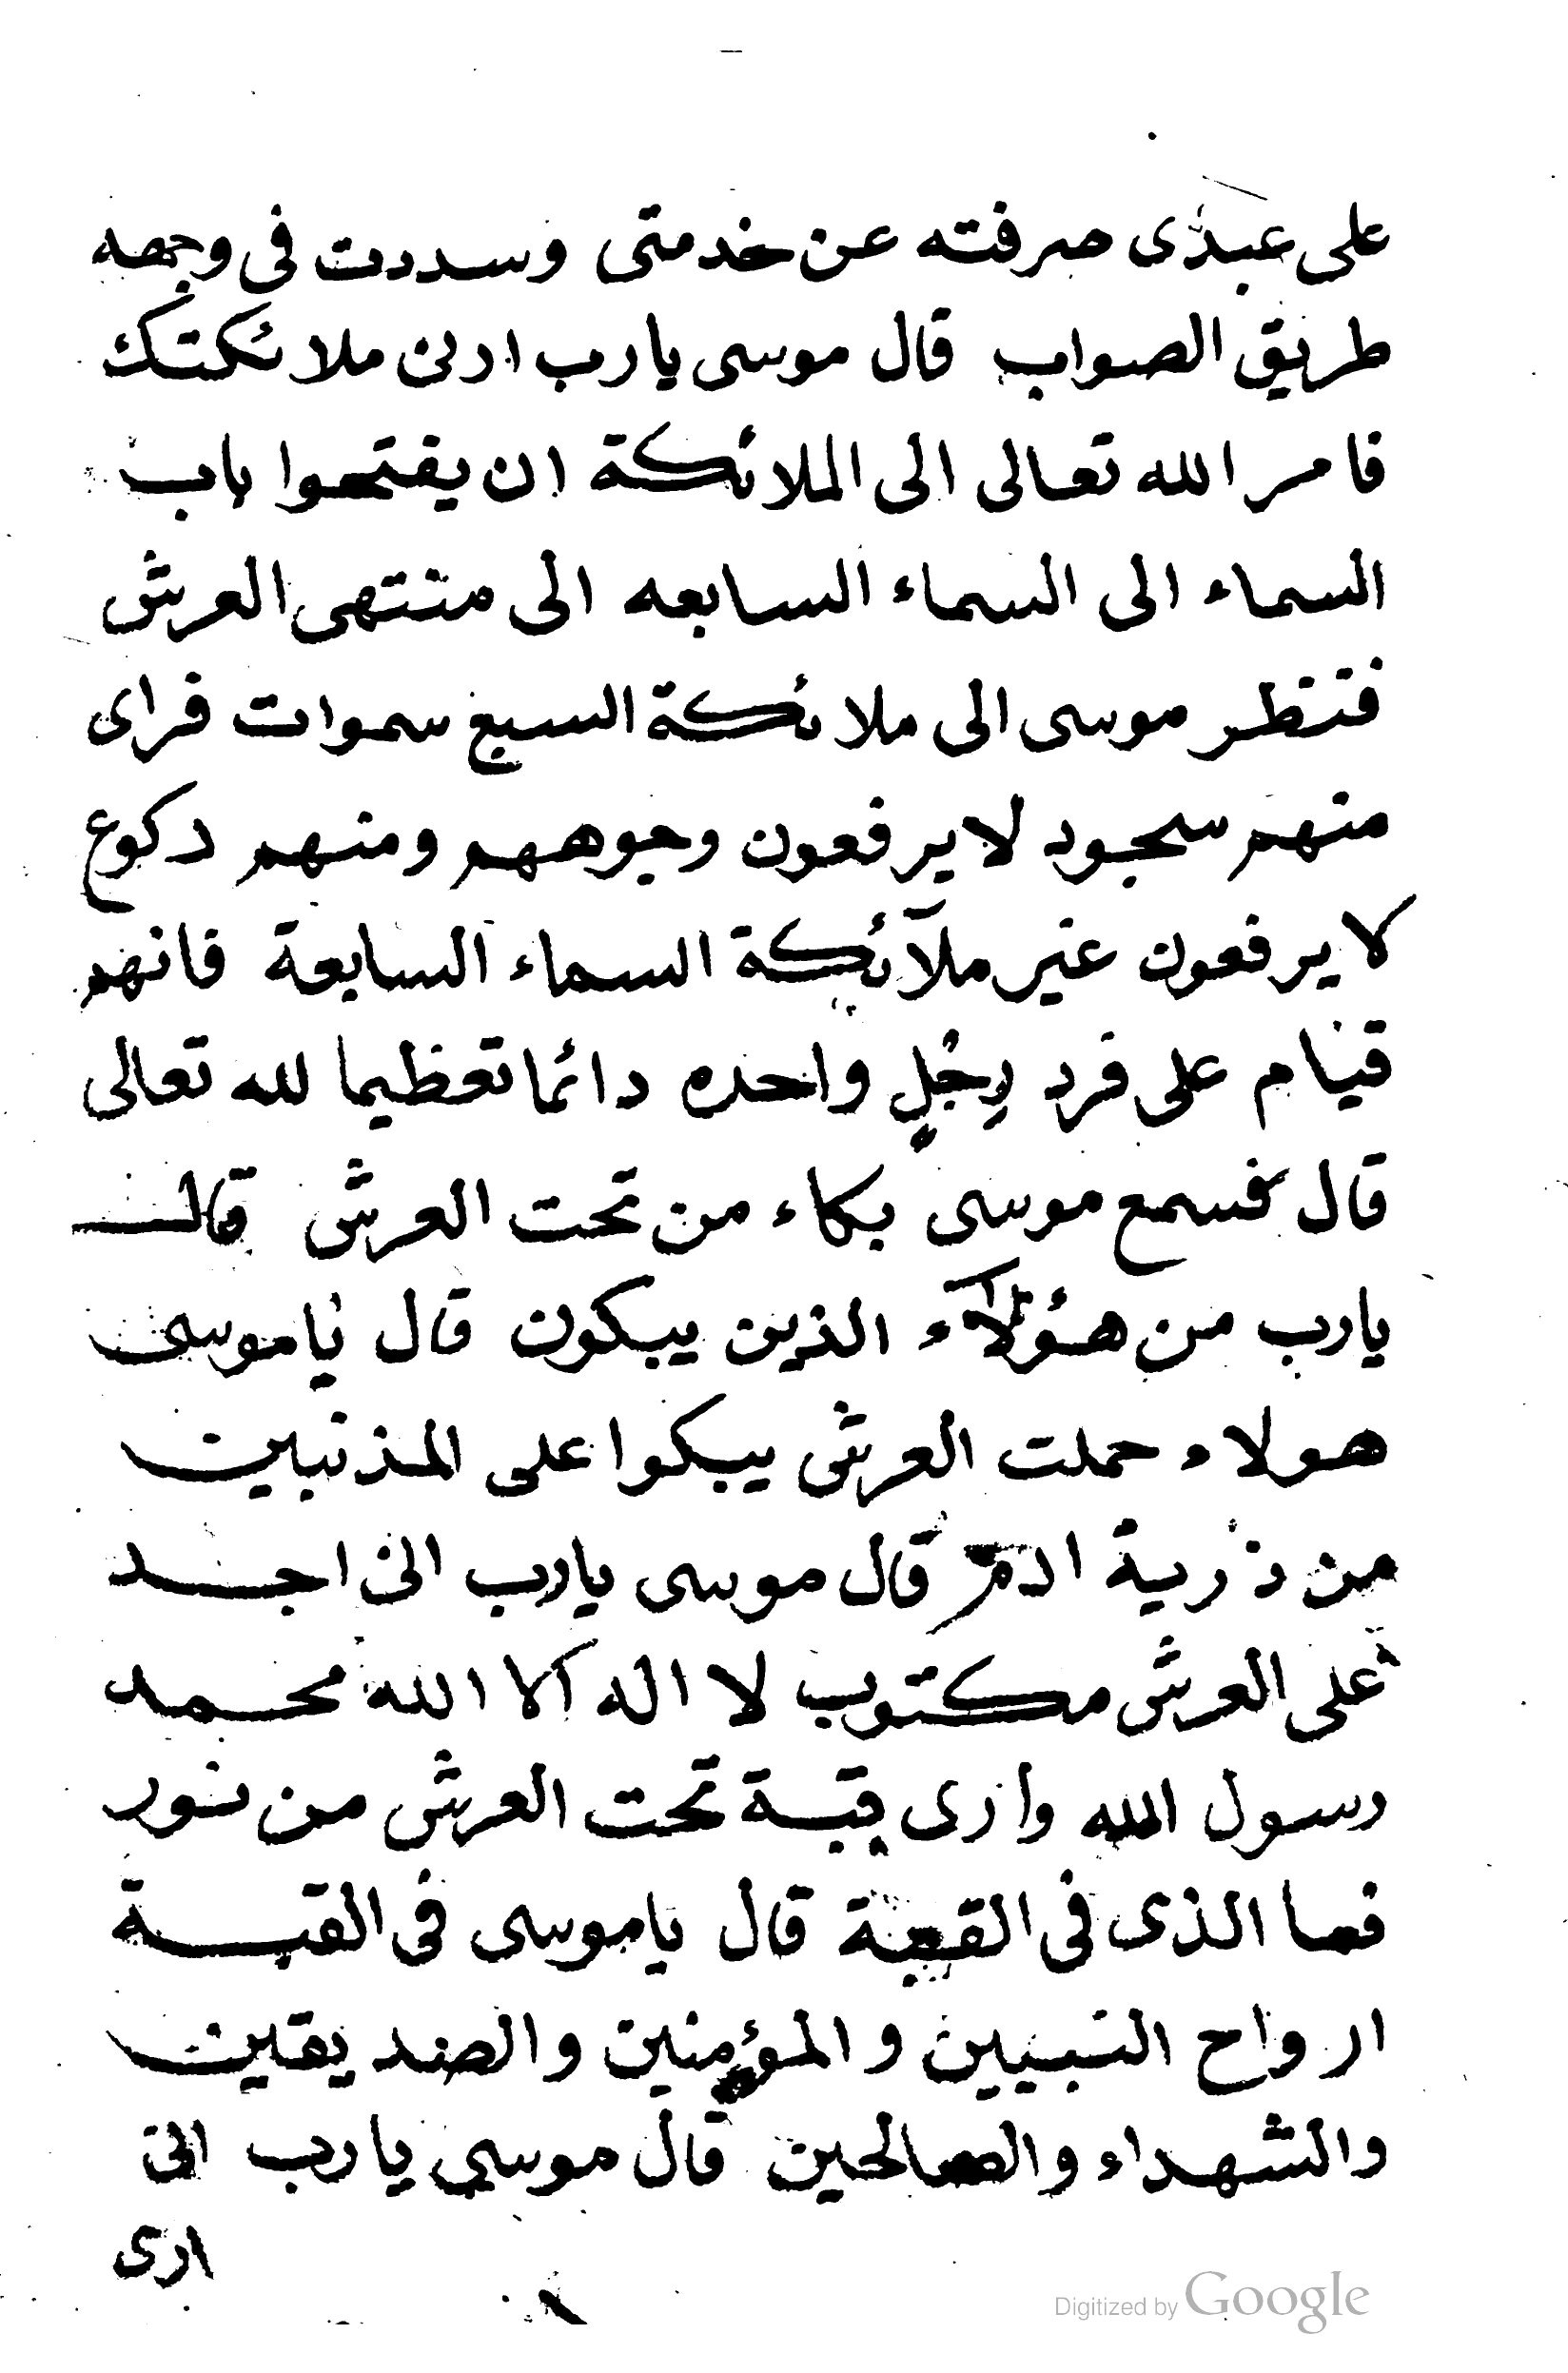 على عبدى صرفته عن خدمتى وسددت فى وجهه
طريق الصواب قال موسى يارب ارنى ملائكتك
فامر الله تعالى الى الملائكة ان يفتحوا باب
السماء الى السماء السابعه الى منتهى العرش
فنظر موسى الى ملائكة السبع سموات فراى
منهم سجود لا يرفعون وجوههم ومنهم ركوع
لا يرفعون غير ملآئكة السماء السابعة فانهم
قيام على فرد رِجْلٍ واحده دائما تعظيما لله تعالى
قال فسمع موسى بكاء من تحت العرش قال
يارب من هؤلآء الذين يبكون قال ياموسى
هولاء حملت العرش يبكوا على المذنبين
من ذرية ادم قال موسى يارب انى اجد
على العرش مكتوب لا اله الا الله محمد
رسول الله وارى قبة تحت العرش من نور
فما الذى فى القبة قال ياموسى فى القبة
ارواح النبيين والمؤمنين والصديقين
والشهداء والصالحين قال موسى يارب انى
ارى
Digitized by Google